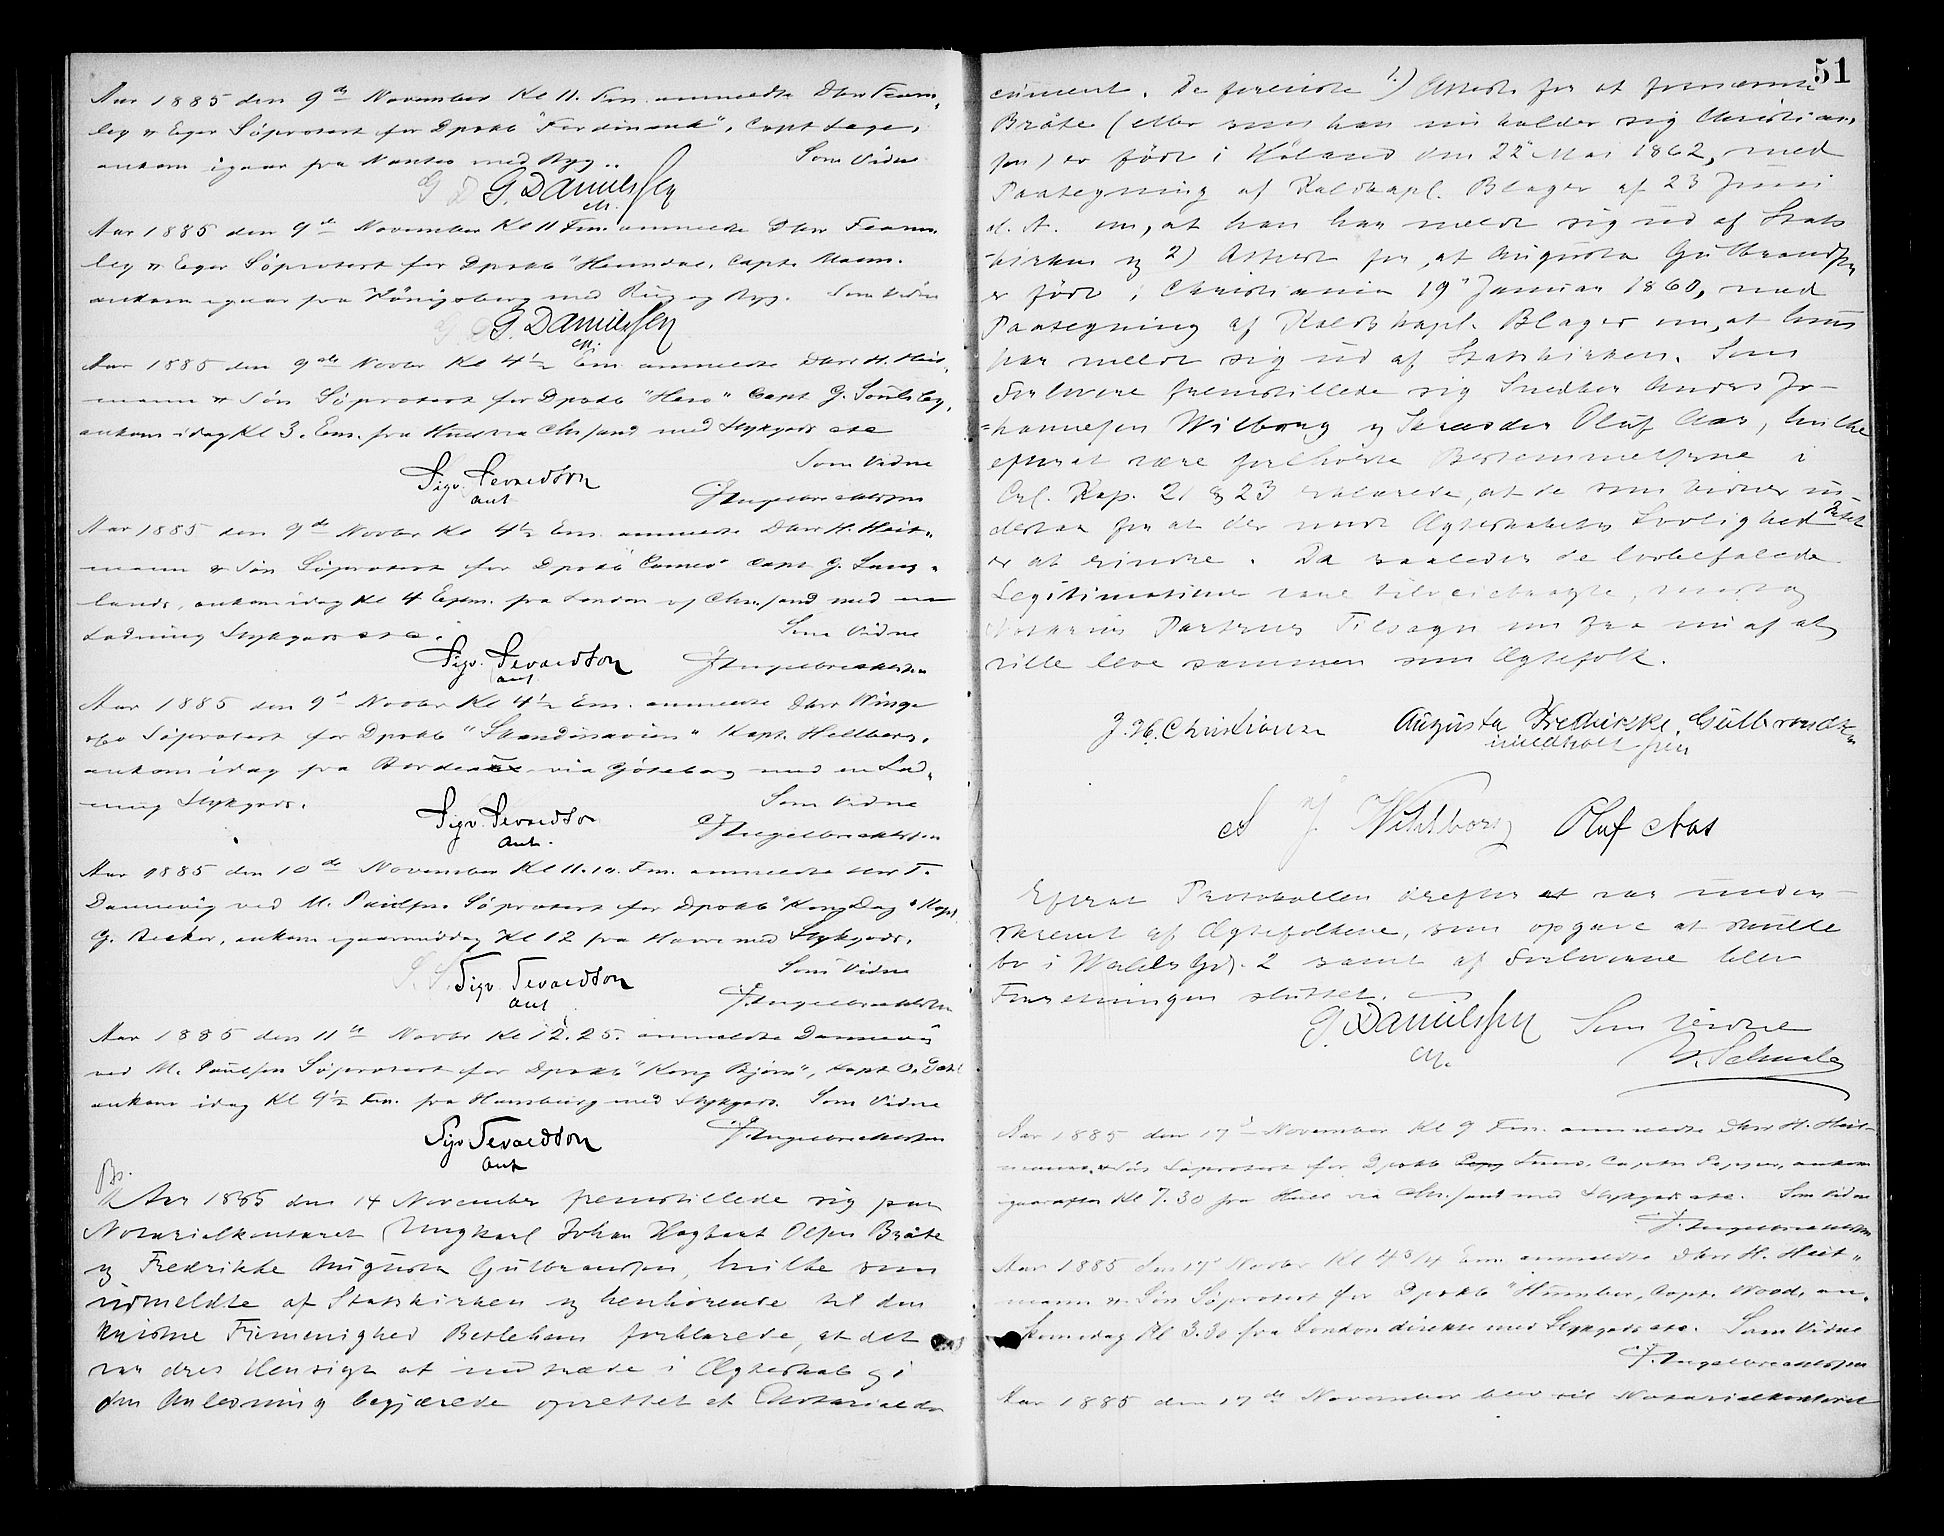 Aar 1885 den 9de November Kl 11. Fm. anmeldte Dhrr Fearn-
ley & Eger Söprotest for Dpskb "Ferdinand", Capt Lage,
ankom igaar fra Nantes med Byg..
Som Vidne
G. Danielssen
cst.
Aar 1885 den 9de November Kl 11 Fm. anmeldte Dhrr Fearn-
ley & Eger Söprotest for Dpskb "Heimdal, Capt.
ankom igaar fra Königsberg med Rug og Byg. Som Vidne
G. Danielssen
cst.
Aar 1885 den 9de Novbr Kl 4½ Em anmeldte Dhrr H. Heit-
mann & Sön Söprotest for Dpskb "Hero" Capt G. Soulsby,
ankom idag Kl 3. Em. fra Hull via Chr.sand med Stykgods etc
Som Vidne
Sigv. Sevaldson
ant
J. Ingelbrechtsen
Aar 1885 den 9de Novbr Kl 4½ Em. anmeldte Dhrr H. Heit-
mann & Sön Söprotest for Dpskb Cameo Capt G. Lang-
lands, ankom idag Kl 4 Efm. fra London og Chr.sand med en
Ladning Stykgods etc.
Som Vidne
Sigv. Sevaldson
ant.
J. Ingelbrechtsen
Aar 1885 den 9de Novbr Kl 4½ Em. anmeldte Dhrr Winge
& Co Söprotest for Dpskb "Skandinavien" Kapt. Hellberg.
ankom idag fra Bordeaux via Göteborg med en Lad-
ning Stykgods.
Som Vidne
Sigv. Sevaldson
ant.
J. Ingelbrechtsen
Aar 1885 den 10de November Kl 11.10. Fm. anmeldte Hrr T.
Dannevig ved M. Paulsen Söprotest for Dpskb "Kong Dag" Kapt
G. Becker, ankom igaarmiddag Kl 12 fra Havre med Stykgods.
Som Vidne
Sigv. Sevaldson
ant
J. Ingelbrechtsen
Aar 1885 den 11te Novbr Kl 12.25. anmeldte Dannevig
ved M. Paulsen Söprotest for Dpskb "Kong Bjørn", Kapt O. Dahl
ankom idag Kl 9½ Fm. fra Hamburg med Stykgods. Som Vidne
Sigv Sevaldson
ant
J. Ingelbrechtsen
Aar 1885 den 14 November fremstillede sig paa
Notarialkontoret Ungkarl Johan Hagbart Olsen Bråte
og Fredrikke Augusta Gulbrandsen, hvilke som
udmeldte af Statskirken og henhörende til den
kristne Frimenighed Betlehem forklarede, at det
var deres Hensigt at indtræde i Ægteskab og i
den Anledning begjærede oprettet et Notarialdo-
51
cument. De foreviste 1.) Attest for at fornævnte
Bråte (eller som han nu kalder sig Christian-
sen) er födt i Höland den 22de Mai 1862, med
Paategning af Kaldskapl. Blager af 23 Juni
d. A. om, at han har meldt sig ud af Stats-
kirken og 2) Attest for, at Augusta Gulbrandsen
er födt i Christiania 19de Januar 1860, med
Paategning af Kaldskapl. Blager om, at hun
har meldt sig ud af Statskirken. Som
Forlovere fremstillede sig Snedker Anders Jo-
hannesen Wilborg og Skrædder Oluf Aas, hvilke
efterat være foreholdte Bestemmelserne i
Crl. Kap. 21 § 23 erklærede, at de som Vidner in-
destaa for at der mod Ægteskabets Lovlighed Intet
er at erindre. Da saaledes de lovbefalede
Legitimationer vare tilveiebragte, modtog
Notarius Parternes Tilsagn om fra nu af at
ville leve sammen som Ægtefolk.
J. H. Christiansen
Augusta Fredrikke Gulbrandsen
med holt pen
A J. Wihlborg Oluf Aas
Efterat Protokollen derefter var under-
skrevet af Ægtefolkene, som opgave at skulle
bo i gd. 2 samt af Forloverne blev
Forretningen sluttet.
G. Danielssen
cst.
Som Vidne
Aar 1885 den 17de November Kl 9 Fm. anmeldte Dhrr H. Heit-
mann & Sön Söprotest for Dpskb Capt Pepper, ankom
igaaraftes Kl 7.30 fra Hull via Chr.sand med Stykgods etc. Som Vidne
J. Ingelbrechtsen
Aar 1885 den 17de Novbr Kl 4¾ Em. anmeldte Dhrr H. Heit-
mann & Sön Söprotest for Dpskb "Humber, Capt. Wood, an-
kom idag Kl 3.30 fra London direkte med Stykgods etc. Som Vidne
J. Ingelbrechtsen
Aar 1885 den 17de November blev til Notarialkontoret